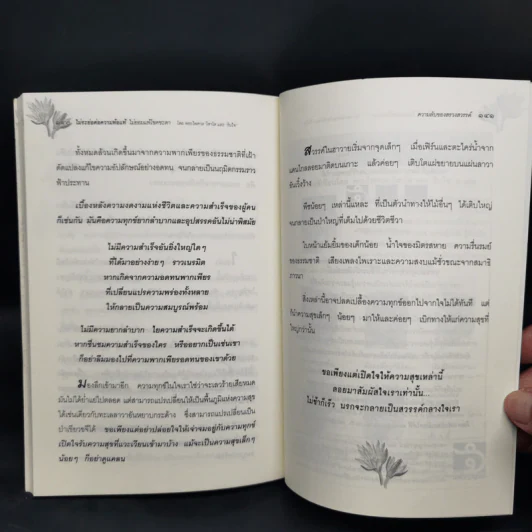 ไม่ยอมแพ้โชคชะตา
ทั้งหมดล้วนเกิดขึ้นมาจากความพากเพียรของธรรมชาติที่เฝ้า
ดัดแปลงแก้ไขความอัปลักษณ์อย่างอดทน จนกลายเป็นภูมิสถาปัตย์ราว
ฟ้าประทาน
เบื้องหลังความงดงามแห่งชีวิตและความสำเร็จของผู้คน
ก็เช่นกัน มันคือความทุกข์ยากลำบากและอุปสรรคอันไม่น่าพิสมัย
ไม่มีความสำเร็จอันยิ่งใหญ่ใดๆ
ที่ได้มาอย่างง่ายๆ ราวเนรมิต
หากเกิดจากความอดทนพากเพียร
ที่เปลี่ยนแปรความพร่องทั้งหลาย
ให้กลายเป็นความสมบูรณ์พร้อม
ไม่มีความยากลำบาก ใยความสำเร็จจะเกิดขึ้นได้
หากชื่นชมความสำเร็จของใคร หรืออยากเป็นเช่นเขา
ก็อย่าลืมมองไปที่ความพากเพียรอดทนของเขาด้วย
มองลึกเข้ามาอีก ความทุกข์ในใจเราใช่ว่าจะเลวร้ายเสียหมด
มันไม่ได้ต่ำแย่ไปตลอด แต่สามารถแปรเปลี่ยนให้เป็นพื้นภูมิแห่งความสุข
ได้เช่นเดียวกับทะเลลาวาอันหยาบกระด้าง ซึ่งสามารถแปรเปลี่ยนเป็น
ป่าเขียวขจีได้ ขอเพียงแต่อย่าปล่อยใจให้เจ่าจมอยู่กับความทุกข์
เปิดใจรับความสุขที่แวะเวียนเข้ามาบ้าง แม้จะเป็นความสุขเล็กๆ
น้อยๆ ก็อย่าดูแคลน
ความลับของสรวงสวรรค์ ๑๔๑
สวรรค์ในฮาวายเริ่มจากจุดเล็กๆ เมื่อเฟิร์นและตะไคร่น้ำจาก
แดนไกลลอยมาติดบนเกาะ แล้วค่อยๆ เติบโตแผ่ขยายบนแผ่นลาวา
อันเวิ้งว้าง
พืชน้อยๆ เหล่านี้แหละ ที่เป็นตัวนำทางให้ไม้อื่นๆ ได้เติบใหญ่
จนกลายเป็นป่าใหญ่ที่เต็มไปด้วยชีวิตชีวา
ใบหน้าแย้มยิ้มของเด็กน้อย น้ำใจของมิตรสหาย ความรื่นรมย์
ของธรรมชาติ เสียงเพลงไพเราะและความสงบแม้ชั่วขณะจากสมาธิ
ภาวนา
สิ่งเหล่านี้อาจปลดเปลื้องความทุกข์ออกไปจากใจไม่ได้ทันที แต่
ก็นำความสุขเล็กๆ น้อยๆ มาให้และค่อยๆ เบิกทางให้แก่ความสุขที่
ใหญ่กว่านั้น
ขอเพียงแต่เปิดใจให้ความสุขเหล่านี้
ลอยมาสัมผัสใจเราเท่านั้น...
ไม่ช้าก็เร็ว นรกจะกลายเป็นสวรรค์กลางใจเรา